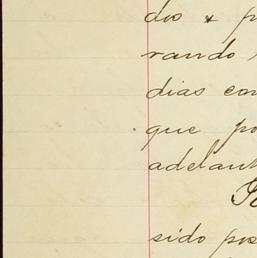 dio & p
rando
dias con
que po
adelant
sido pos